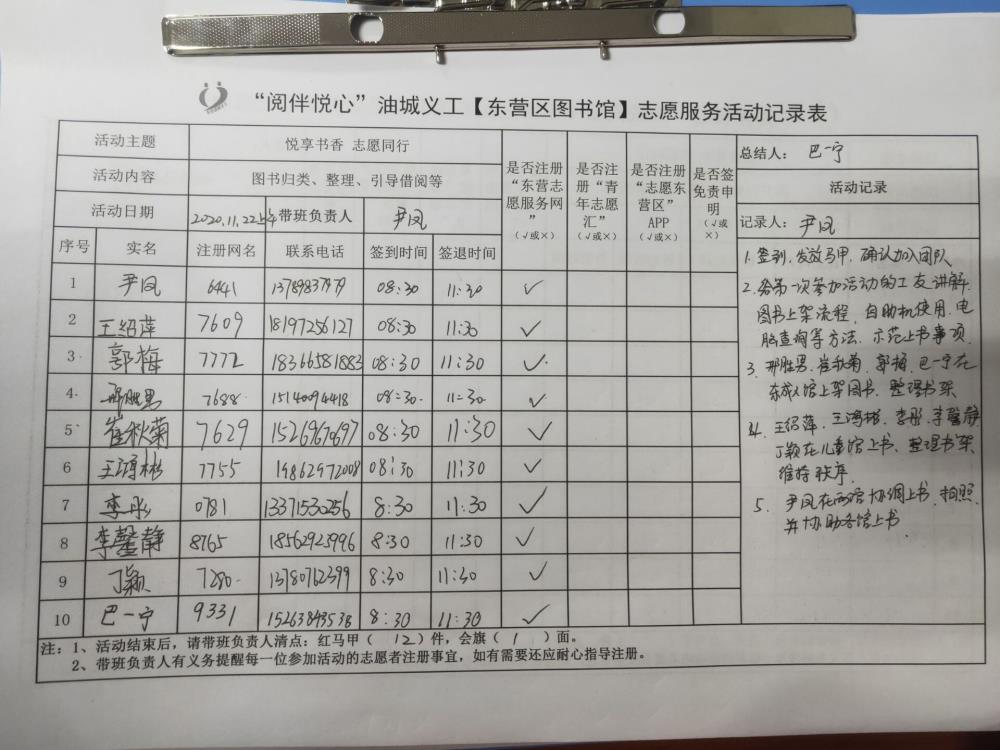 “阅伴悦心”油城义工【东营区图书馆】志愿服务活动记录表
活动主题 悦享书香 志愿同行
活动内容 图书归类、整理、引导借阅等
活动日期 2020.11.22上午 带班负责人 尹凤
序号 实名 注册网名 联系电话 签到时间 签退时间 是否注册“东营志愿服务网”（√或×） 是否注册“青年志愿汇”（√或×） 是否注册“志愿东营区”APP（√或×） 是否签免责申明（√或×）
1 尹凤 6441 13789837979 08:30 11:30 √
2 王绍萍 7609 18197256127 08:30 11:30 √
3 郭梅 7772 18366581883 08:30 11:30 √
4 邢胜男 7688 15140094418 08:30 11:30 √
5 崔秋菊 7629 15269676697 08:30 11:30 √
6 王鸿彬 7755 19862972008 08:30 11:30 √
7 李彤 0781 13371530256 8:30 11:30 √
8 李馨静 8765 18562923996 8:30 11:30 √
9 丁颖 7280 13780762399 8:30 11:30 √
10 巴一宁 9331 15263843538 8:30 11:30 √
总结人： 巴一宁
活动记录
记录人： 尹凤
1. 签到，发放马甲，确认加入团队
2. 给第一次参加活动的工友讲解
图书上架流程，自助机使用、电
脑查询等方法，示范上书事项
3. 邢胜男、崔秋菊、郭梅、巴一宁在
东成人馆上架图书，整理书架
4. 王绍萍、王鸿彬、李彤、李馨静
丁颖在儿童馆上书、整理书架
维持秩序
5. 尹凤在两馆协调上书，拍照
并协助各馆上书
注：1、活动结束后，请带班负责人清点：红马甲（ 12 ）件，会旗（ 1 ）面。
2、带班负责人有义务提醒每一位参加活动的志愿者注册事宜，如有需要还应耐心指导注册。